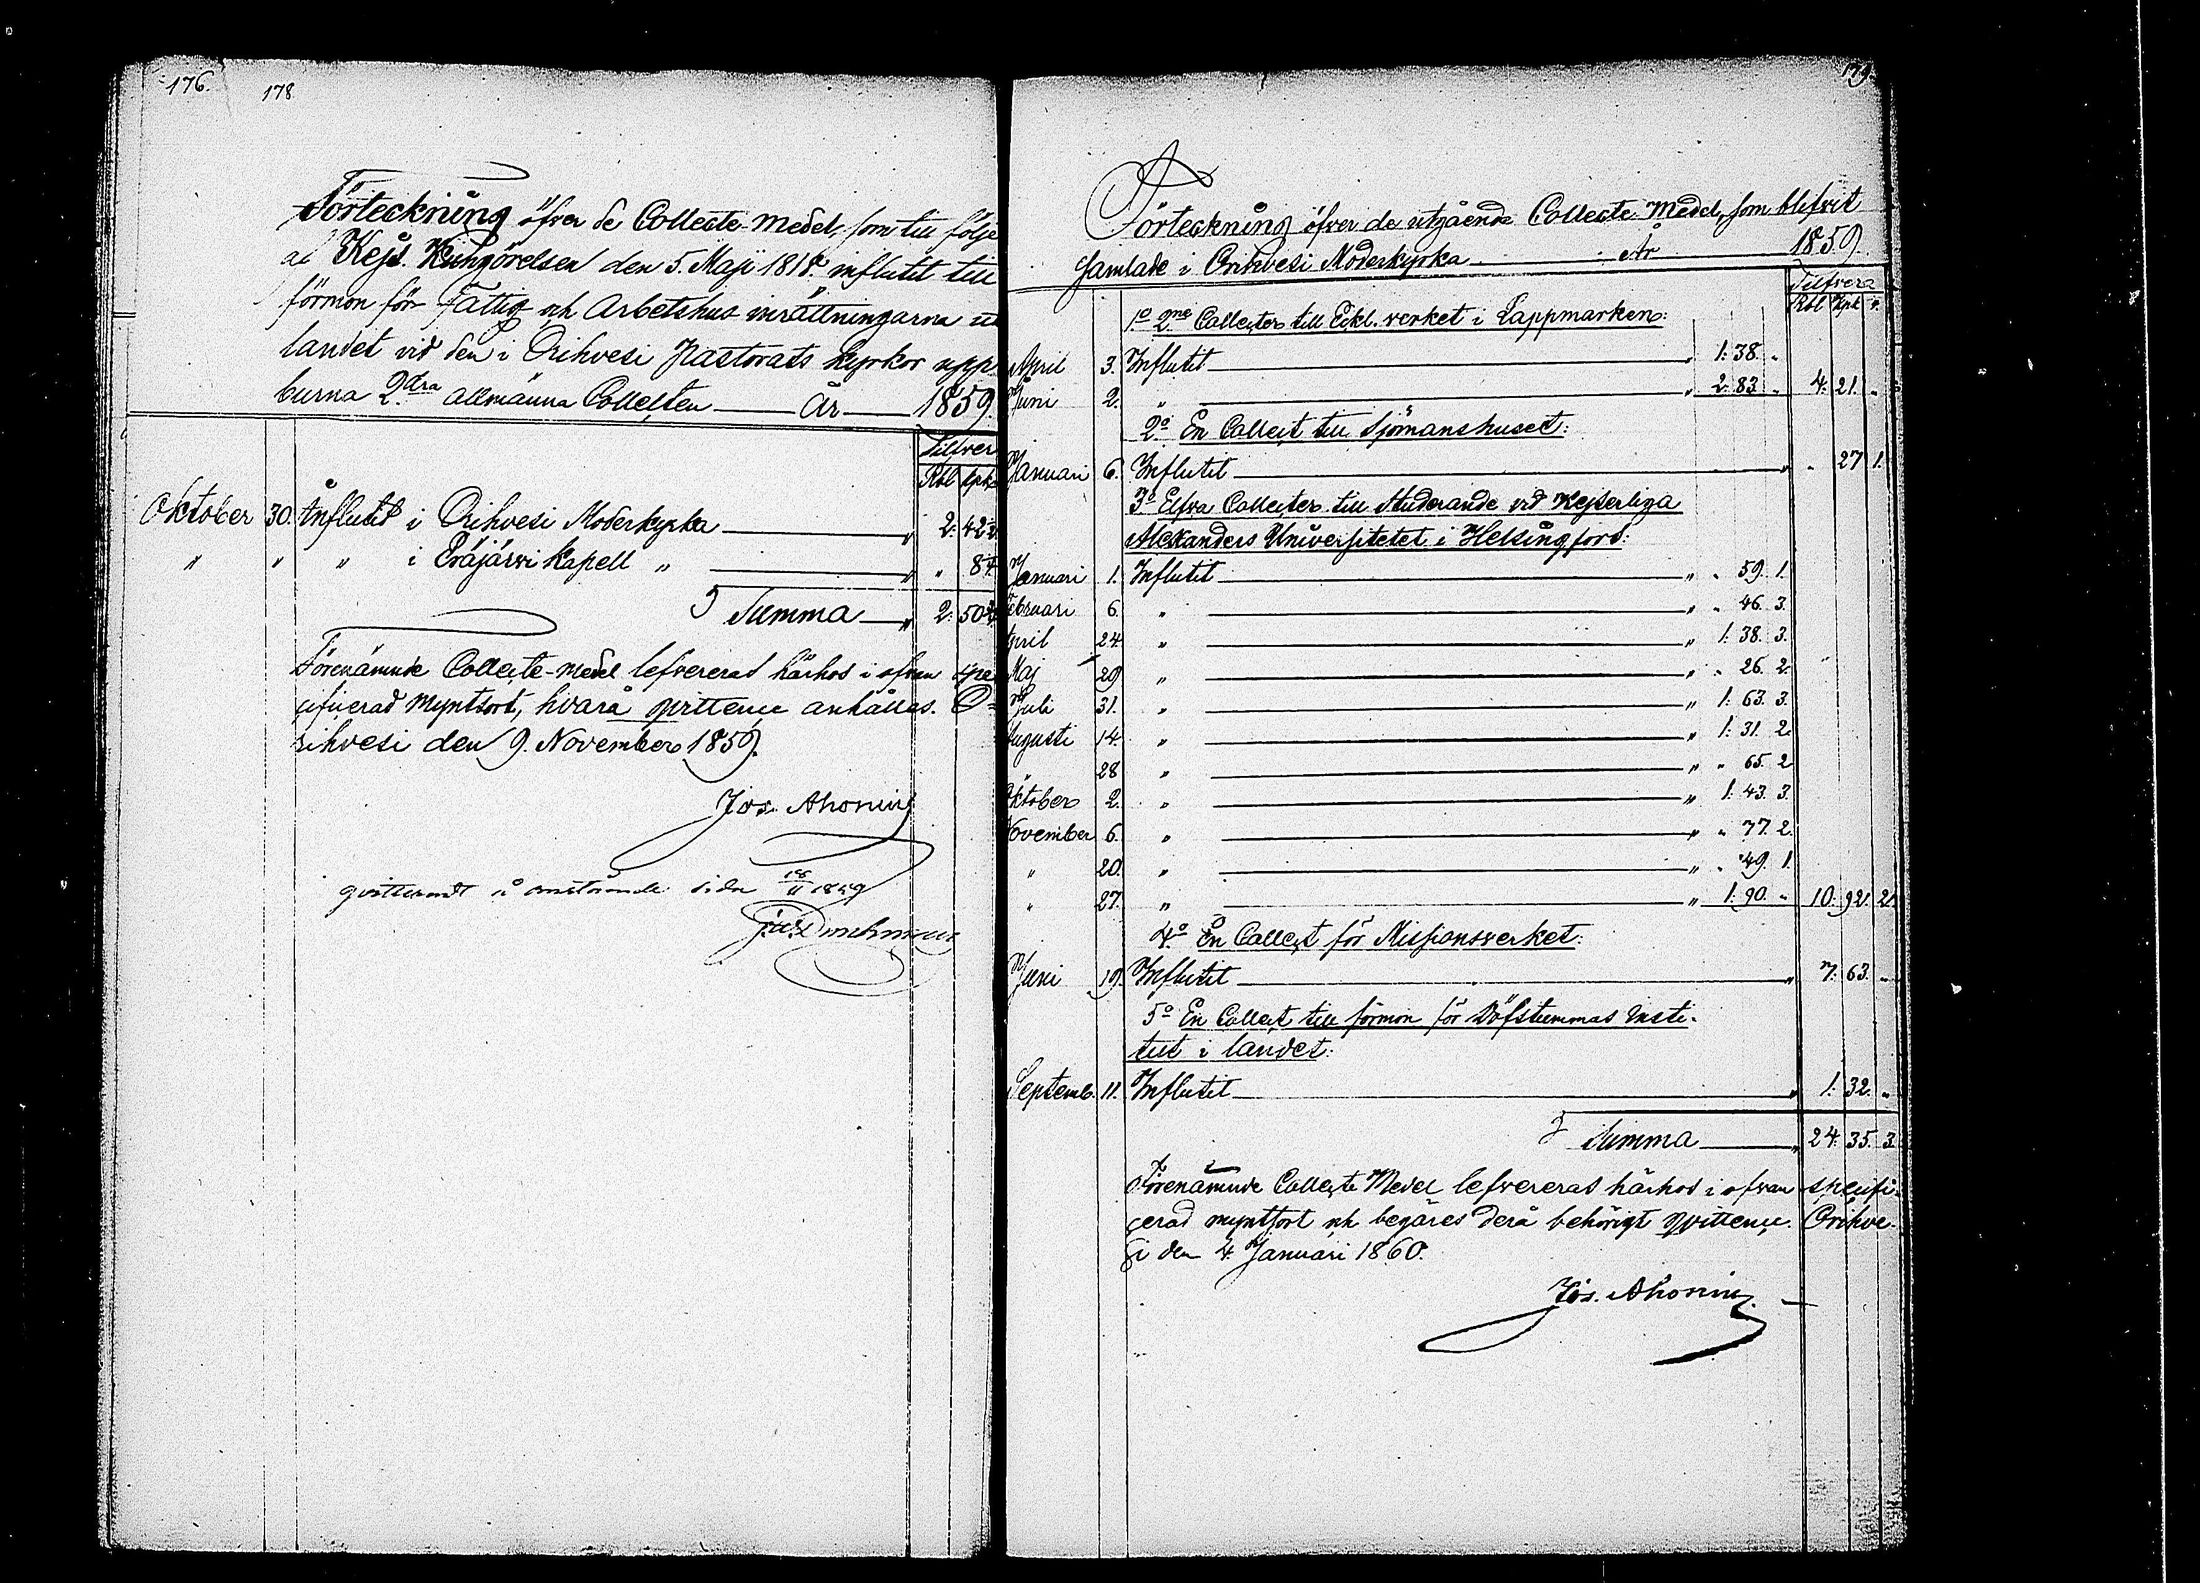 176.
178
Förteckning öfver de Collecte-Medel, som till följe
af Kejs. Kungörelsen den 5. Maji 1818 influtit till
förmon för Fattig och Arbetshus inrättningarna i
landet vid den i Orihvesi Pastorats kyrkor upp
burna 2:dra allmänna Collecten — År — 1859.
Silfver
Rbl kpk
Oktober 30. Influtit i Orihvesi Moderkyrka — " 2. 42 1/2
" " " i Eräjärvi Kapell " — " " 8 1/4
Summa — " 2. 50 3/4
Förenämnde Collecte-medel lefvereras härhos i ofvan spe
cificerad myntsort, hvarå qvittence anhålles. O=
rihvesi den 9. November 1859.
Jos. Ahonius
qvitteradt å omstående sida 18/11 1859
179.
Förteckning öfver de utgående Collecte-Medel, som blifvit
samlade i Orihvesi Moderkyrka — År — 1859.
Silfver
Rbl Kpk
1o 2ne Collecter till Eckl. verket i Lappmarken:
April 3. Influtit — " 1. 38. "
Juni 2. " — " 2. 83. " 4. 21. "
2o En Collect till Sjömanshuset:
Januari 6. Influtit — " " 27 1.
3o Elfva Collecter till Studerande vid Kejserliga
Alexanders Universitetet i Helsingfors:
Januari 1. Influtit — " " 59. 1.
Februari 6. " — " " 46. 3.
April 24. " — " 1. 38. 3.
Maj 29. " — " " 26. 2.
Juli 31. " — " 1. 63. 3.
Augusti 14. " — " 1. 31. 2.
28 " — " " 65. 2
Oktober 2. " — " 1. 43. 3.
November 6. " — " " 77. 2.
" 20. " — " " 49. 1.
" 27. " — " 1. 90. " 10. 92. 2.
4o En Collect för Missionsverket:
Juni 19. Influtit — " 7. 63. "
5o En Collect till förmon för Döfstummas Insti-
tut i landet:
Septemb. 11. Influtit — " 1. 32. "
Summa — " 24. 35. 3.
Förenämnde Collecte Medel lefvereras härhos i ofvan specifi-
cerad myntsort och begäres derå behörigt qvittence. Orihve-
si den 4 Januari 1860.
Jos. Ahonius